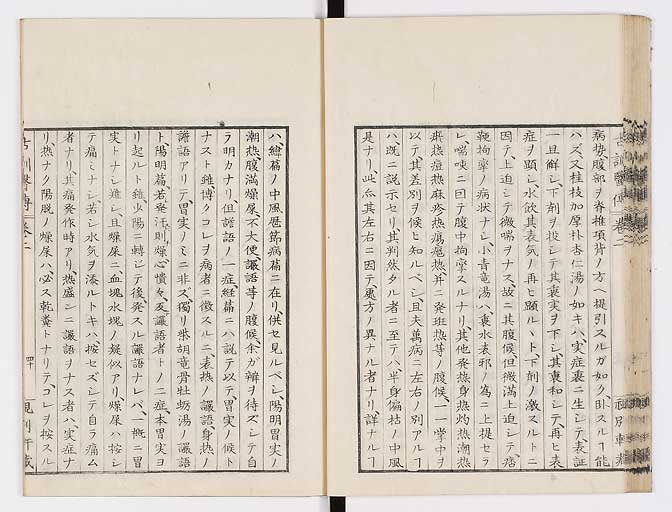 病勢腹部ヲ脊推項背ノ方ヘ提引スルガ如ク、臥スルﾄ能
ハズ、又桂枝加厚朴杏仁湯ノ如キハ、実症裏ニ生シテ、表証
一旦解シ、下剤ヲ投シテ其裏実ヲ下シ、其裏和シテ、再ヒ表
症ヲ顕シ、水飲其表気ノ再ヒ顕ルヽト、下剤ノ激スルトニ
因テ、上迫シテ微喘ヲナス、故ニ其腹候、但微満上迫シテ、痞
鞕拘攣ノ病状ナシ、小青竜湯ハ、裏水表邪ノ為ニ上提セラ
レ、喘咳ニ因テ腹中拘攣スルナリ、其他発熱身熱灼熱潮熱
痳熱痘熱麻疹熱瘟瘧熱并ニ発班熱等ノ腹候、一一掌中ヲ
以テ、其差別ヲ候ヒ知ルベシ、且夫萬病ニ左右ノ別アルヿ
ハ、既ニ説示セリ、其判然タル者ニ至テハ、半身偏枯ノ中風
是ナリ、此亦其左右ニ因テ、処方ノ異ナル者ナリ、詳ナルヿ
ハ、緯篇ノ中風歴節病篇ニ在リ、併セ見ルベシ、陽明胃実ノ
潮熱、腹満燥屎、不大便、譫語等ノ腹候、余ガ辨ヲ待ズシテ自
ラ明カナリ、但譫語ノ一症、経篇ニハ説テ以テ、胃実ノ候ト
ナスト雖、博クコレヲ病者ニ徴スルニ、表熱ノ譫語、身熱ノ
譫語アリテ、胃実ノミニ非ズ、獨リ柴胡竜骨牡蛎湯ノ譫語
ト、陽明篇、若発汗則、燥心憒々反譫語者トノ二症、本胃実ヨ
リ起ルト雖、少陽ニ転シテ後、発スル譫語ナレバ、概ニ胃
実トナシ難シ、且燥屎ニ、血塊水塊ノ疑似アリ、燥屎ハ按シ
テ痛ミナシ、若シ水気ヲ湊ルトキハ、按セズシテ自ラ痛ム
者ナリ、其痛発作時アリ、熱盛シニ譫語ヲナス者ハ、実症ナ
リ、熱ナク陽脱ノ燥屎ハ、必ス乾糞トナリテ、コレヲ按スル
四十